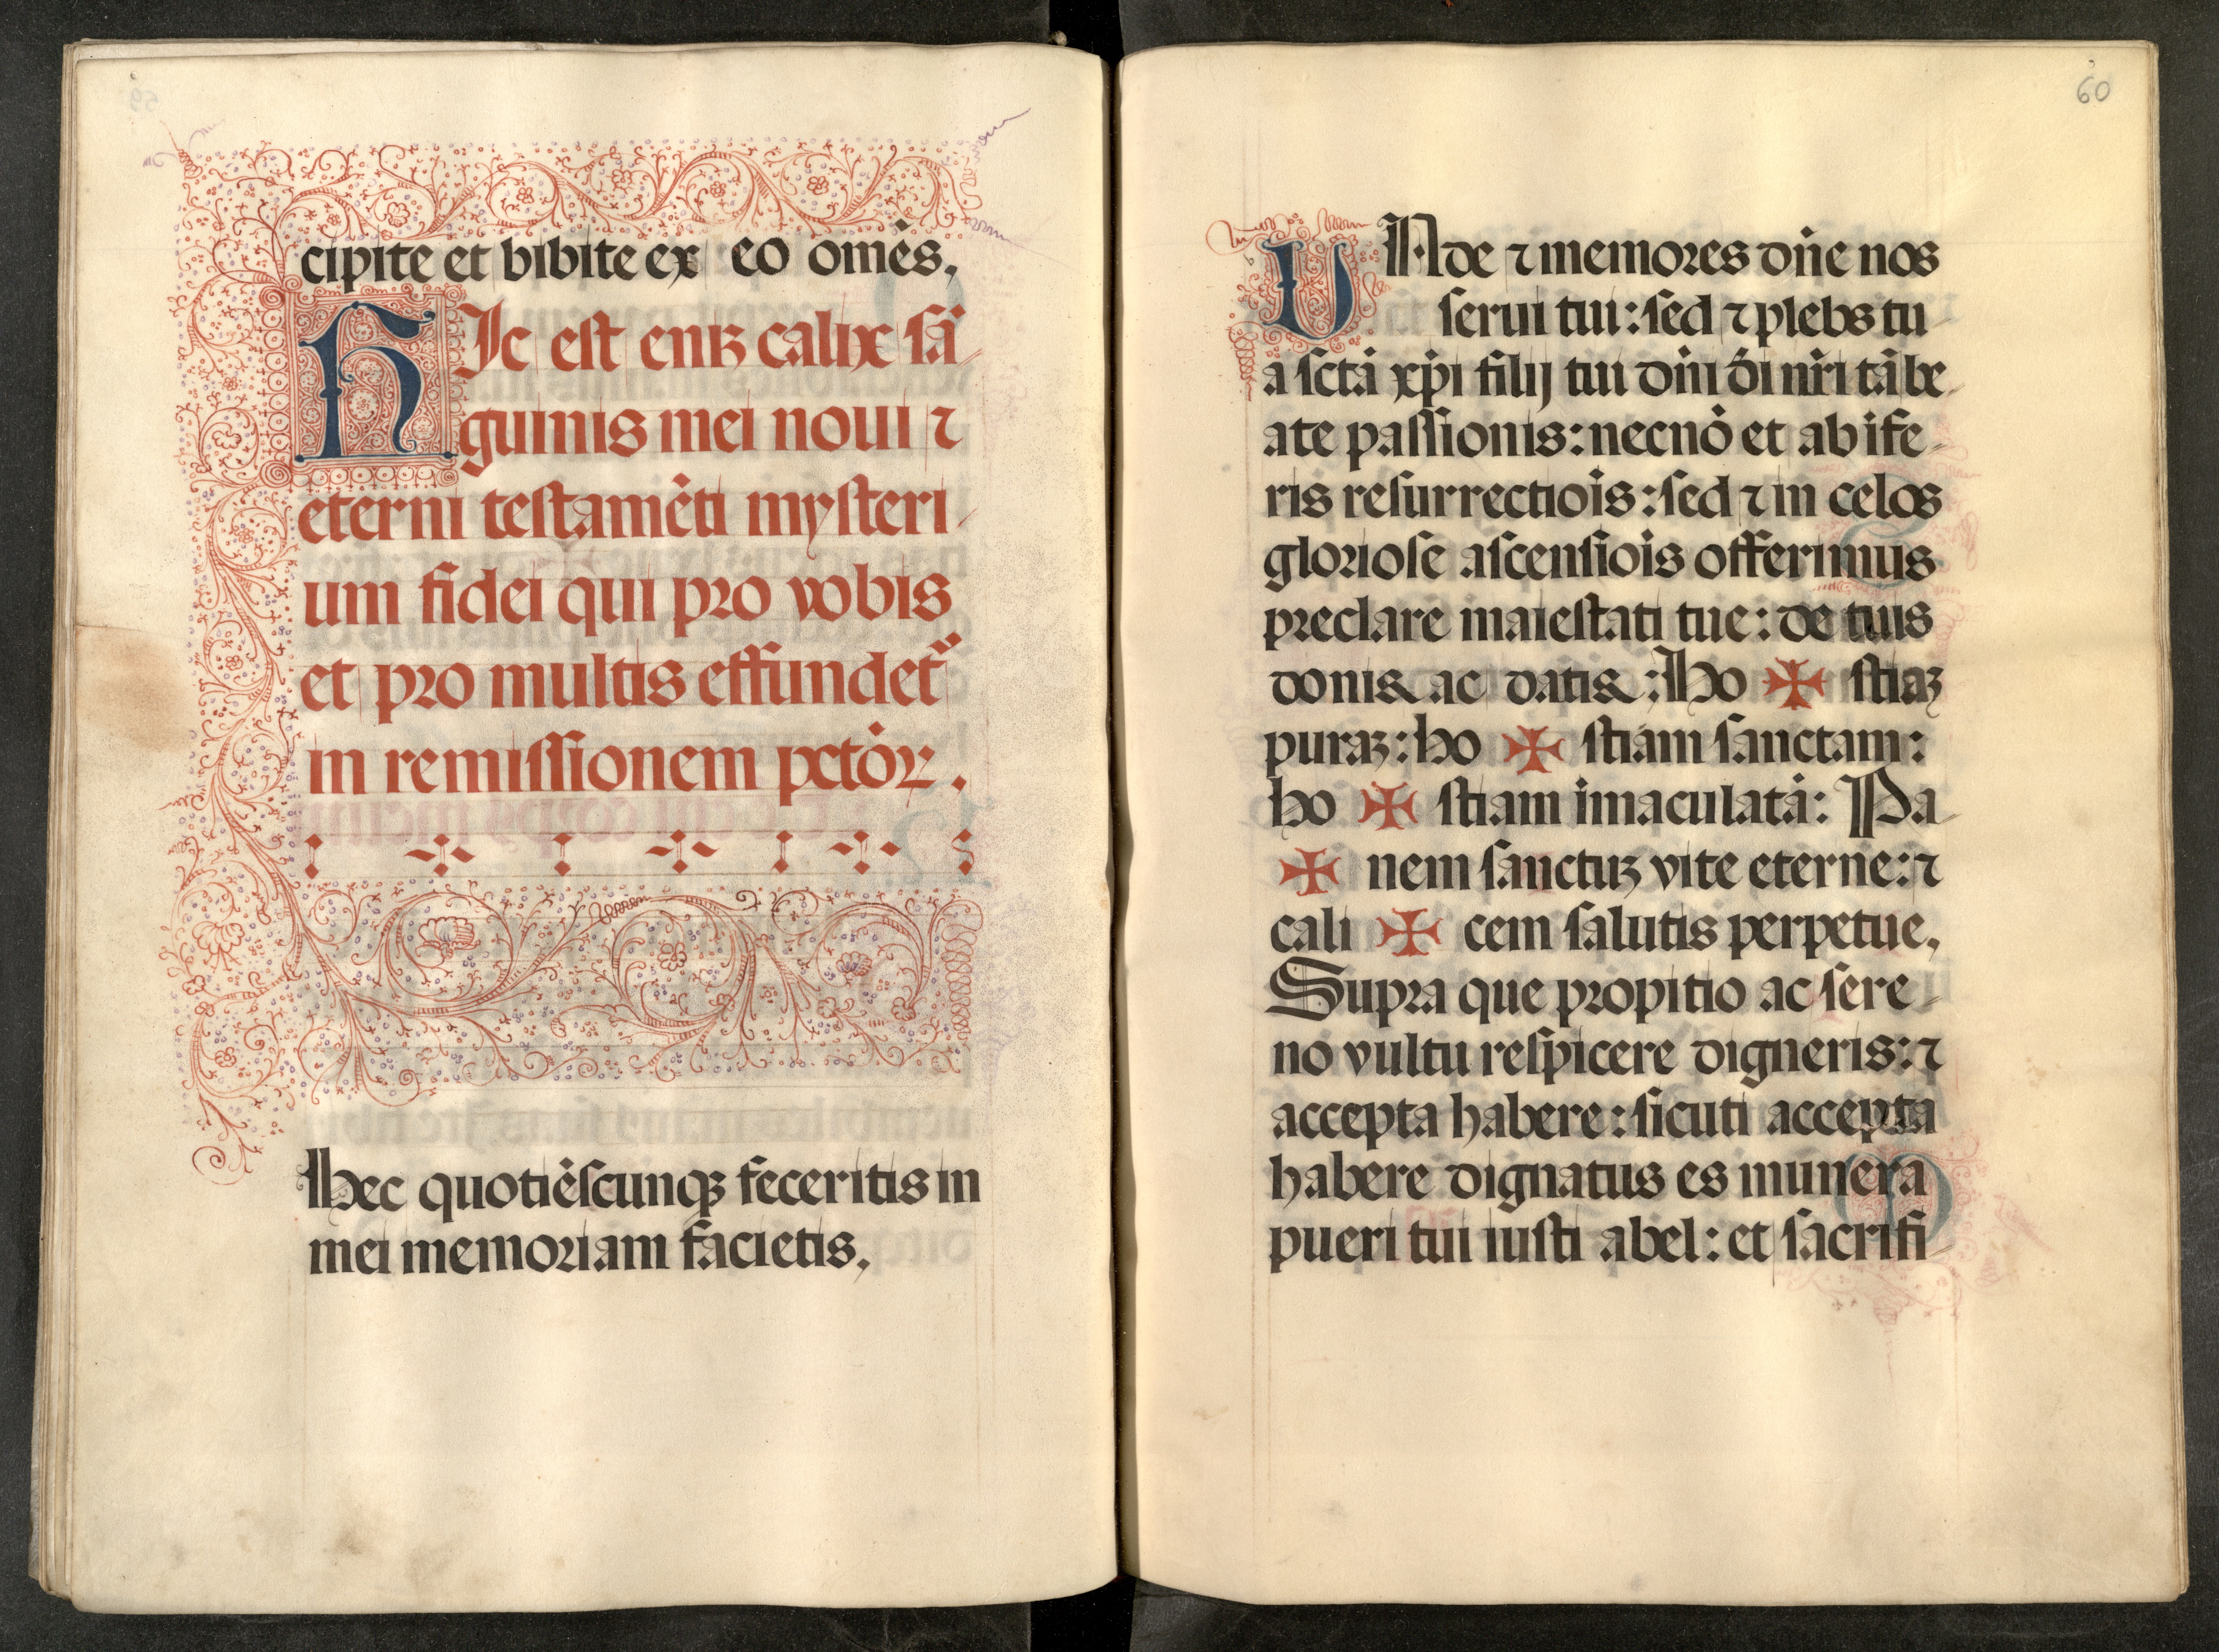 cipite et bibite ex eo om̄es.
HIc est enꝫ calix sā
guinis mei noui ⁊
eterni testamēti mysteri
um fidei qui pro vobis
et pro multis effundet᷑
in remissionem pctōꝝ.
Hec quotiēscunqꝫ feceritis in
mei memoriam facietis.
60
VNde ⁊ memores dn̄e nos
serui tui: sed ⁊ plebs tu
a sctā xp̄i filij tui dn̄i dī nr̄i tā be
ate passionis: necnō et ab īfe
ris resurrectiōis: sed ⁊ in celos
gloriose ascensiōis offerimus
preclare maiestati tue: de tuis
donis ac datis: Ho ✠ stiaꝫ
puraꝫ: ho ✠ stiam sanctam:
ho ✠ stiam īmaculatā: Pa
✠ nem sanctuꝫ vite eterne: ⁊
cali ✠ cem salutis perpetue.
Supra que propitio ac sere
no vultu respicere digneris: ⁊
accepta habere: sicuti accepta
habere dignatus es munera
pueri tui iusti abel: et sacrifi